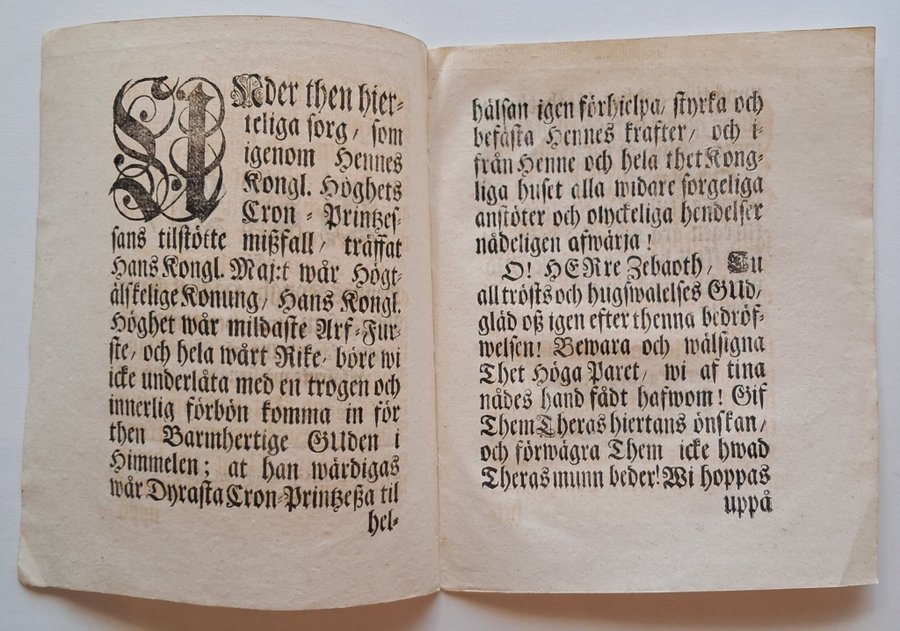 UNder then hier-
teliga sorg / som
igenom Hennes
Kongl. Höghets
Cron-Printzes-
sans tilstötte mißfall / träffat
Hans Kongl. Maj:t wår Högt-
älskelige Konung / Hans Kongl.
Höghet wår mildaste Arf-Fur-
ste / och hela wårt Rike / böre wi
icke underlåta med en trogen och
innerlig förbön komma in för
then Barmhertige GUden i
Himmelen; at han wärdigas
wår Dyrasta Cron-Printzeßa til
hel-
hälsan igen förhielpa / styrka och
befästa Hennes krafter / och i-
från Henne och hela thet Kong-
liga huset alla widare sorgeliga
anstöter och olyckeliga hendelser
nådeligen afwärja!
O! HERre Zebaoth / Tu
all trösts och hugswalelses GUd /
gläd oß igen efter thenna bedröf-
welsen! Bewara och wälsigna
Thet Höga Paret / wi af tina
nådes hand fådt hafwom! Gif
Them Theras hiertans önskan /
och förwägra Them icke hwad
Theras munn beder! Wi hoppas
uppå